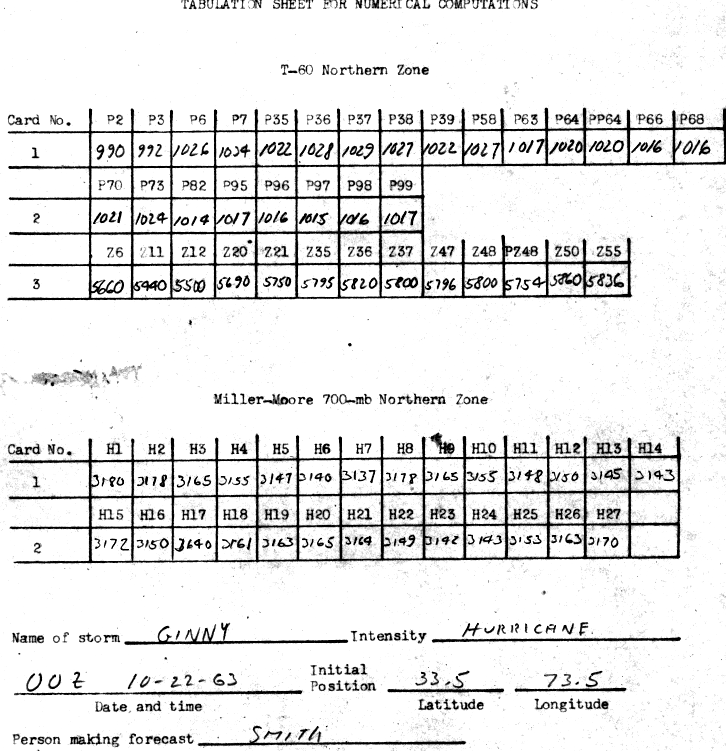 TABULATION SHEET FOR NUMERICAL COMPUTATIONS
T-60 Northern Zone
Card No. P2 P3 P6 P7 P35 P36 P37 P38 P39 P58 P63 P64 PP64 P66 P68
1 990 992 1026 1024 1022 1028 1029 1027 1022 1027 1017 1020 1020 1016 1016
P70 P73 P82 P95 P96 P97 P98 P99
2 1021 1024 1014 1017 1016 1015 1016 1017
Z6 Z11 Z12 Z20 Z21 Z35 Z36 Z37 Z47 Z48 PZ48 Z50 Z55
3 5660 5440 5500 5690 5750 5795 5820 5800 5796 5800 5754 5860 5836
Miller-Moore 700-mb Northern Zone
Card No. H1 H2 H3 H4 H5 H6 H7 H8 H9 H10 H11 H12 H13 H14
1 3180 3178 3165 3155 3147 3140 3137 3178 3165 3155 3148 3150 3145 3143
H15 H16 H17 H18 H19 H20 H21 H22 H23 H24 H25 H26 H27
2 3172 3150 3640 3161 3163 3165 3164 3149 3142 3143 3153 3163 3170
Name of storm GINNY Intensity HURRICANE
00Z 10-22-63 Initial Position 33.5 73.5
Date and time Latitude Longitude
Person making forecast SMITH